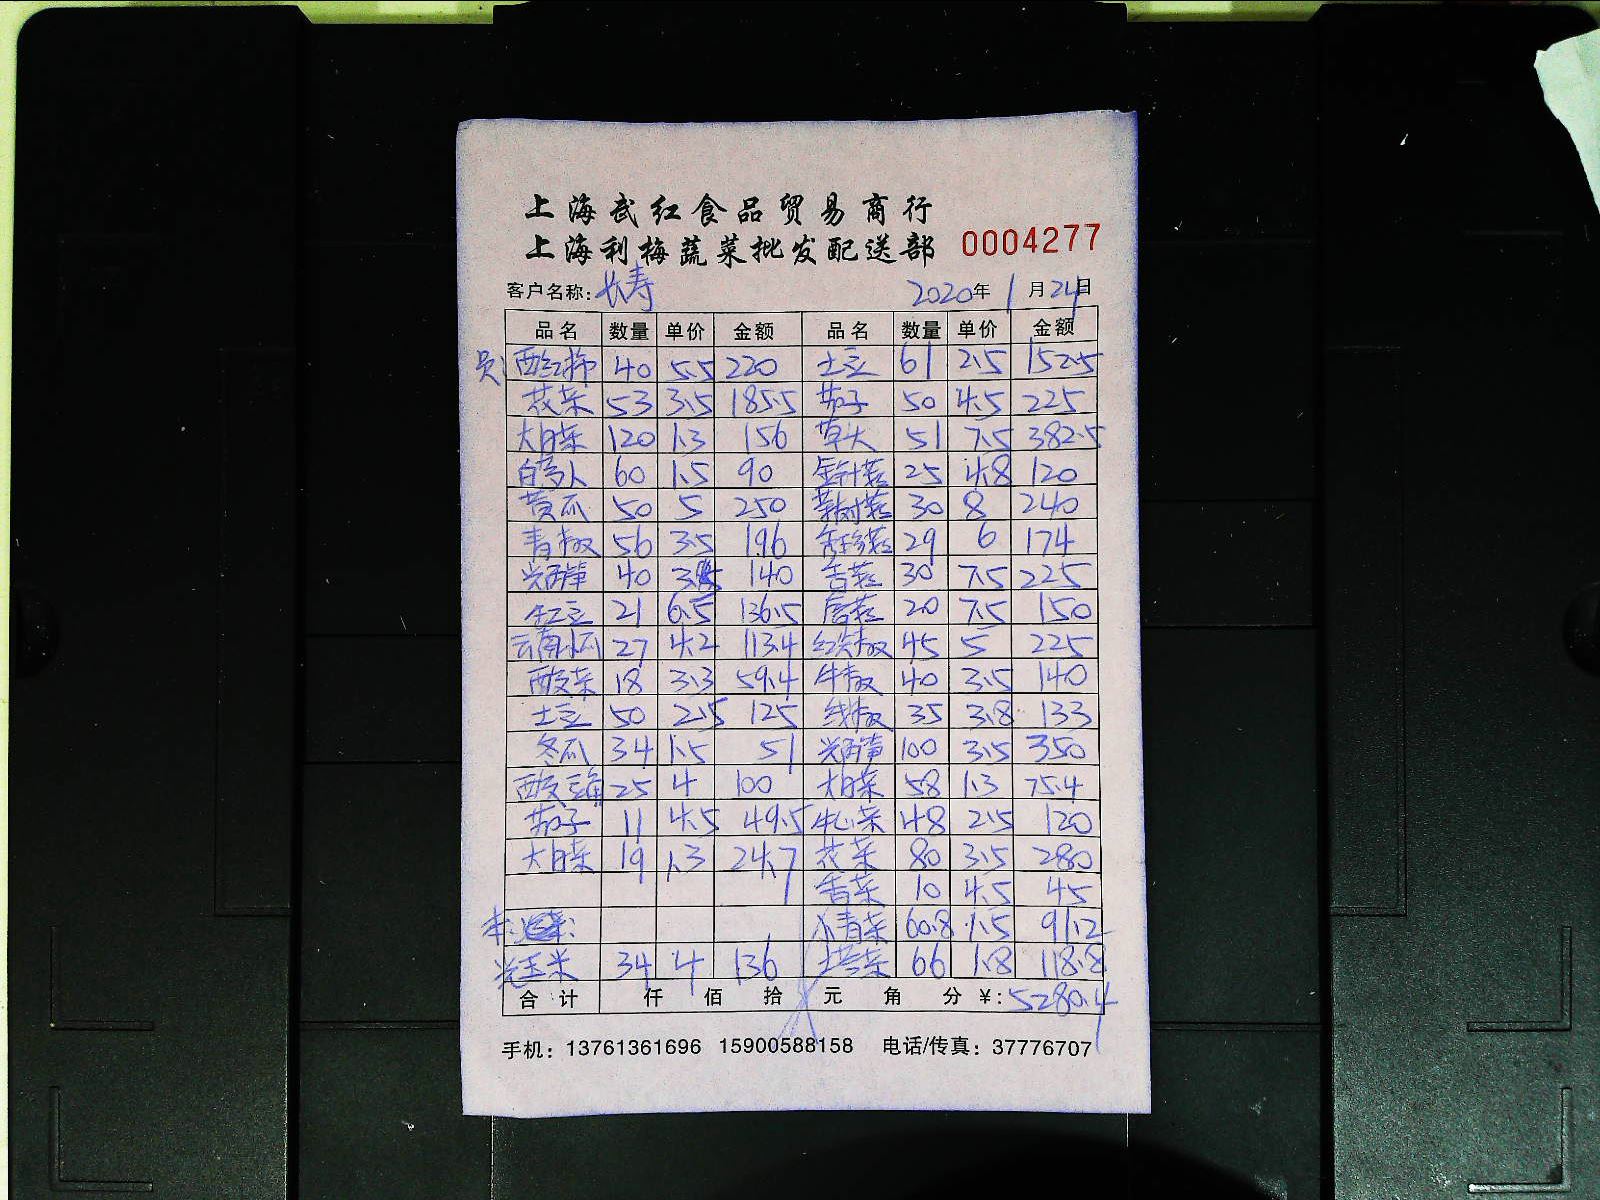 上海武红食品贸易商行
上海利梅蔬菜批发配送部 0004277
客户名称: 长寿 2020年 1月24日
品名 数量 单价 金额 品名 数量 单价 金额
员: 西红柿 40 5.5 220 土豆 61 2.5 152.5
花菜 53 3.5 185.5 茄子 50 4.5 225
大白菜 120 1.3 156 草头 51 7.5 382.5
白萝卜 60 1.5 90 金针菇 25 4.8 120
黄瓜 50 5 250 茶树菇 30 8 240
青椒 56 3.5 196 秀珍菇 29 6 174
光莴笋 40 3.5 140 香菇 30 7.5 225
豇豆 21 6.5 136.5 20 7.5 150
云南小瓜 27 4.2 113.4 红尖椒 45 5 225
酸菜 18 3.3 59.4 牛椒 40 3.5 140
土豆 50 2.5 125 线椒 35 3.8 133
冬瓜 34 1.5 51 光莴笋 100 3.5 350
酸豆角 25 4 100 大白菜 58 1.3 75.4
茄子 11 4.5 49.5 牛心菜 48 2.5 120
大白菜 19 1.3 24.7 花菜 80 3.5 280
香菜 10 4.5 45
小青菜 60.8 1.5 91.2
光玉米 34 4 136 塔菜 66 1.8 118.8
合计 仟 佰 拾 元 角 分 ¥: 5280.4
手机: 13761361696 15900588158 电话/传真: 37776707